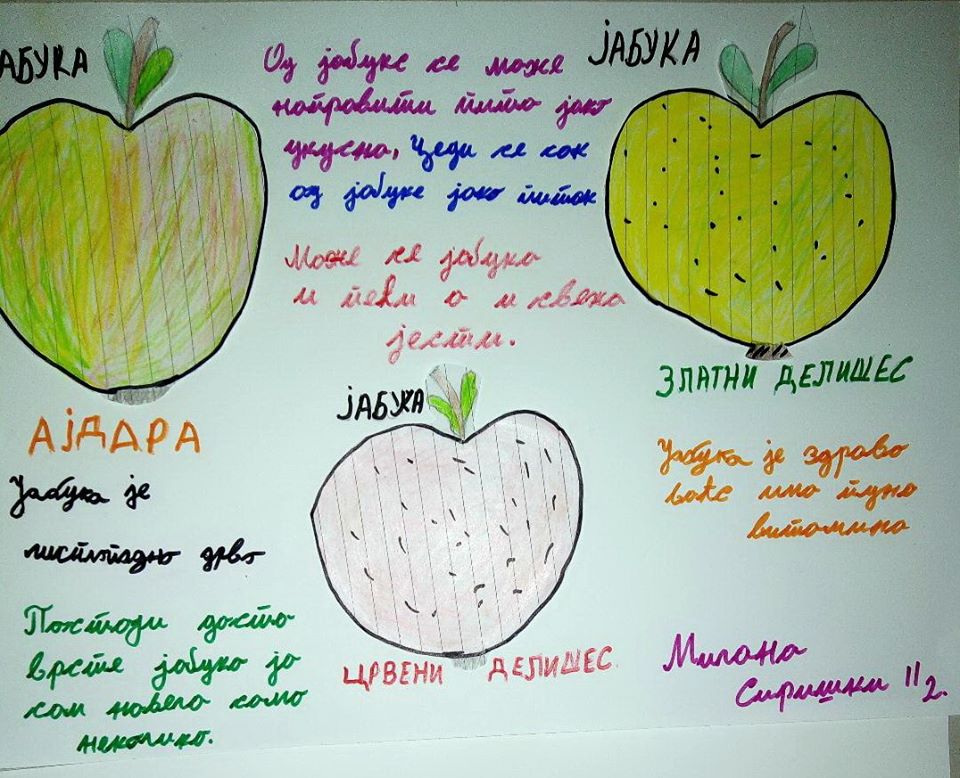 ЈАБУКА
АЈДАРА
Јабука је
листопадно дрво
Постоји доста
врсте јабука ја
сам навела само
неколико.
Од јабуке се може
направити пита јако
укусна, Цеди се сок
од јабуке јако питак
Може се јабука
и пећи а и свежа
јести.
ЈАБУКА
ЦРВЕНИ ДЕЛИШЕС.
ЈАБУКА
ЗЛАТНИ ДЕЛИШЕС
Јабука је здраво
воће има пуно
витамина
Милана
Сиришки II2.